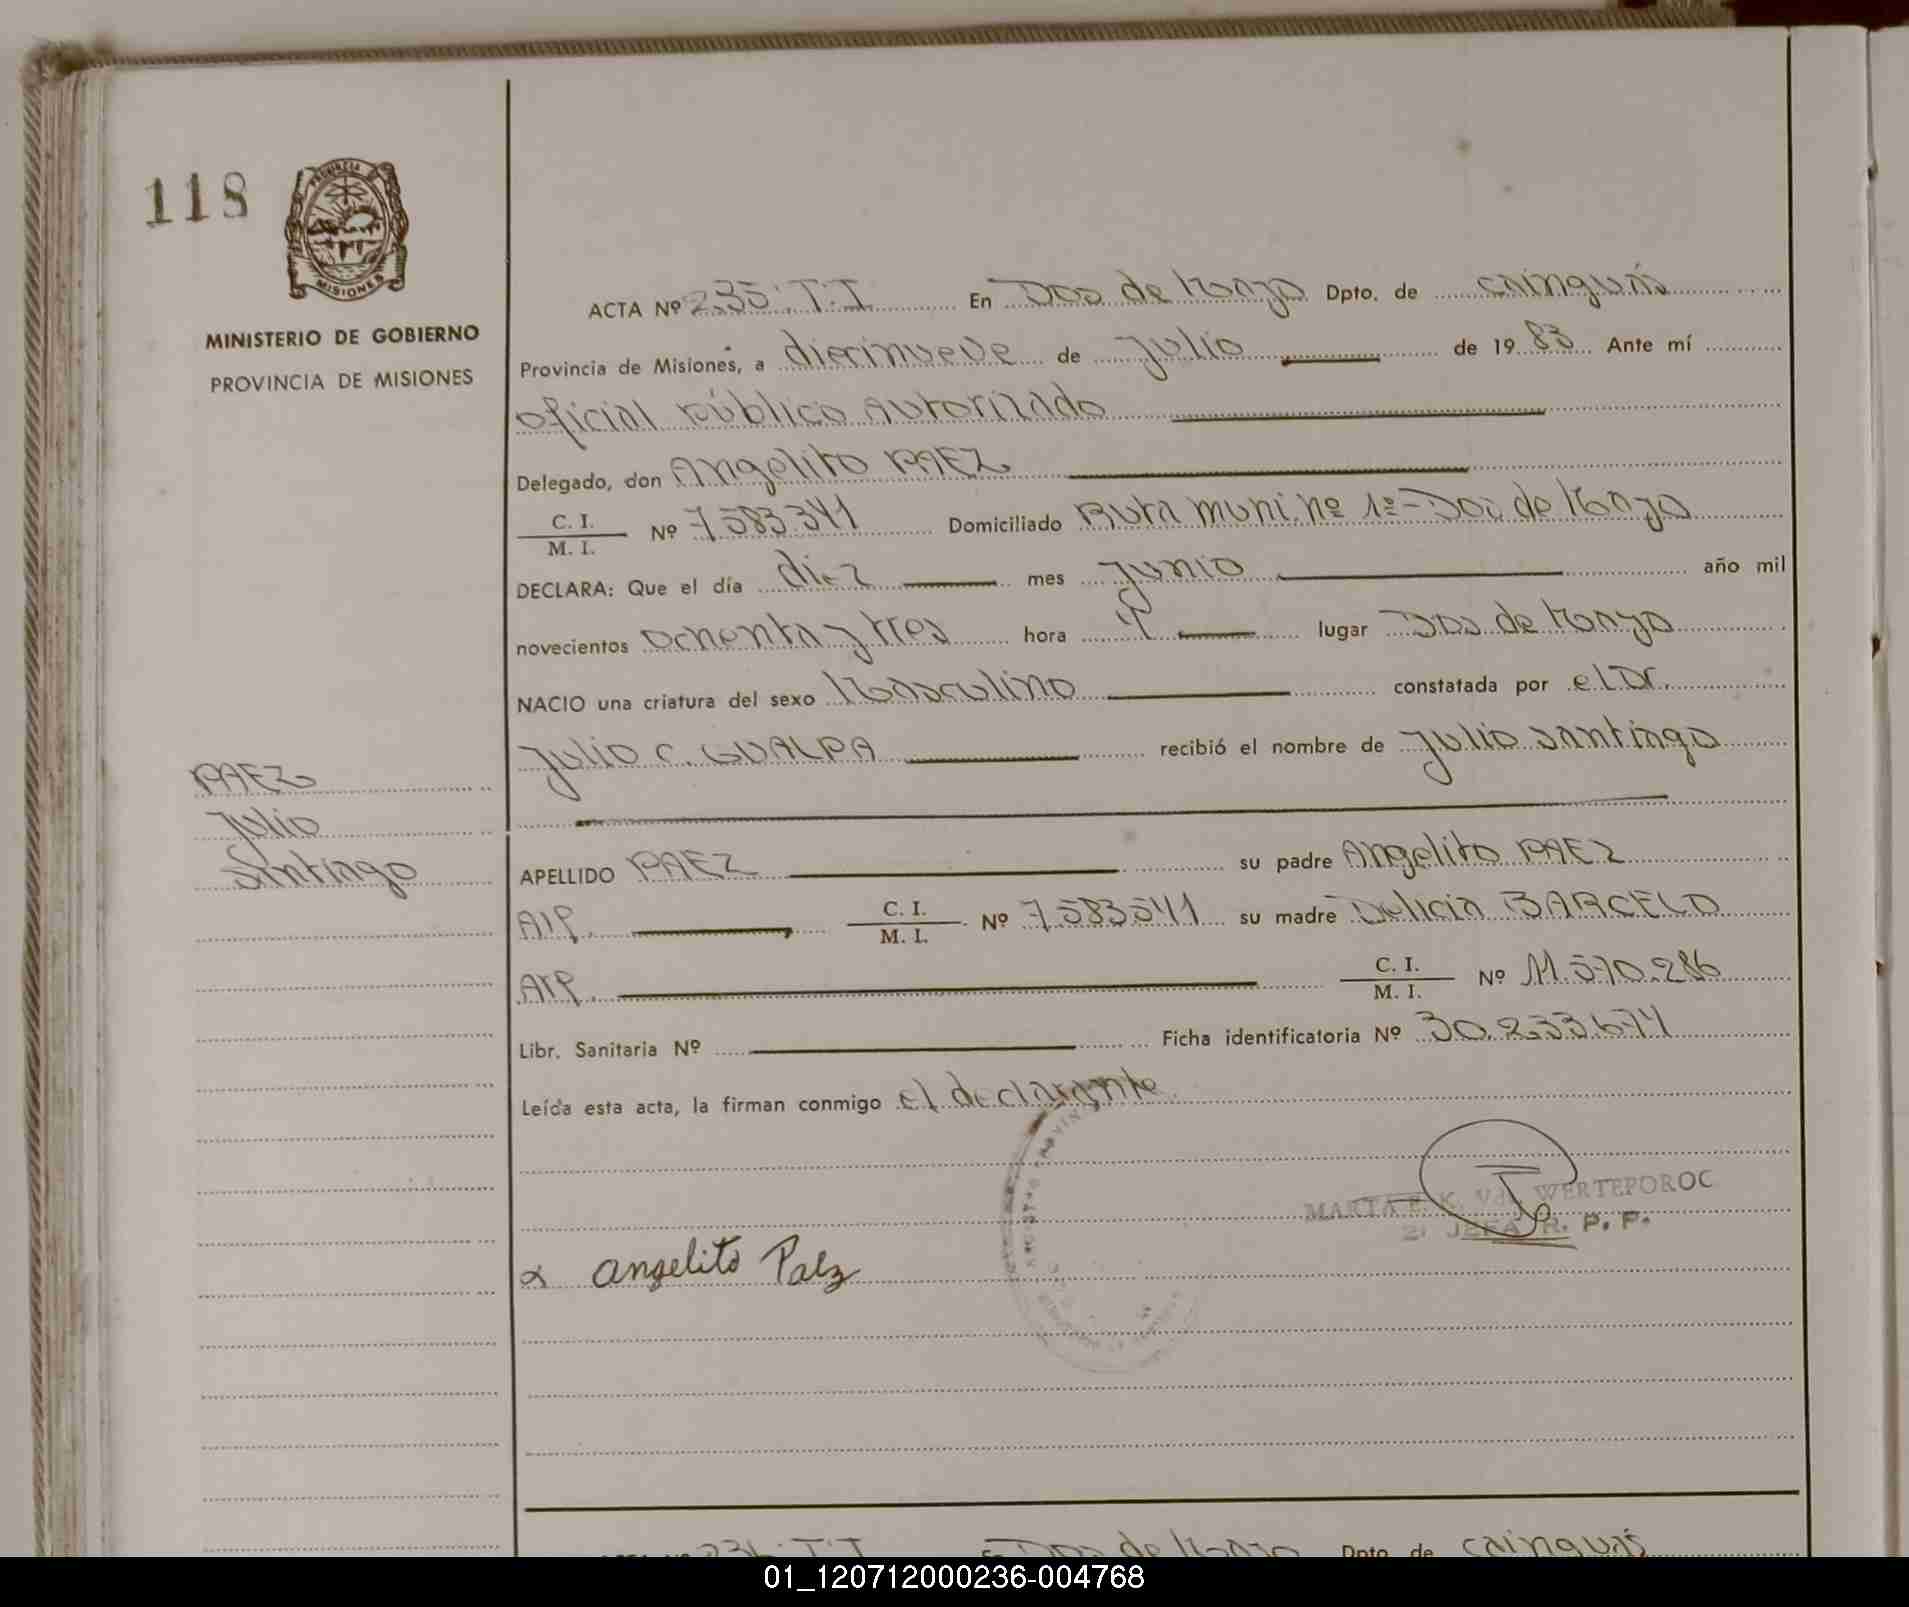 118
PROVINCIA
MISIONES
MINISTERIO DE GOBIERNO
PROVINCIA DE MISIONES
ACTA Nº 235. T. I. En Dos de Mayo Dpto. de Cainguás
Provincia de Misiones, a diecinueve de Julio de 1983 Ante mí
Oficial Público Autorizado
Delegado, don Angelito PAEZ
C. I.
M. I. Nº 7.583.341 Domiciliado Ruta Muni. nº 1º - Dos de Mayo
DECLARA: Que el día diez mes Junio año mil
novecientos ochenta y tres hora lugar Dos de Mayo
NACIO una criatura del sexo Masculino constatada por el Dr.
Julio C. GUALPA recibió el nombre de Julio Santiago
PAEZ
Julio
Santiago
APELLIDO PAEZ su padre Angelito PAEZ
Arg. C. I.
M. I. Nº 7.583.541 su madre Delicia BARCELO
Arg. C. I.
M. I. Nº 11.570.286
Libr. Sanitaria Nº Ficha identificatoria Nº 30.233.671
Leída esta acta, la firman conmigo el declarante.
MARTA E. K. Vda. WERTEPOROC
2. JEFA R. P. P.
Angelito Paez
236. T. I. Dos de Mayo Dpto. de Cainguás
01_120712000236-004768